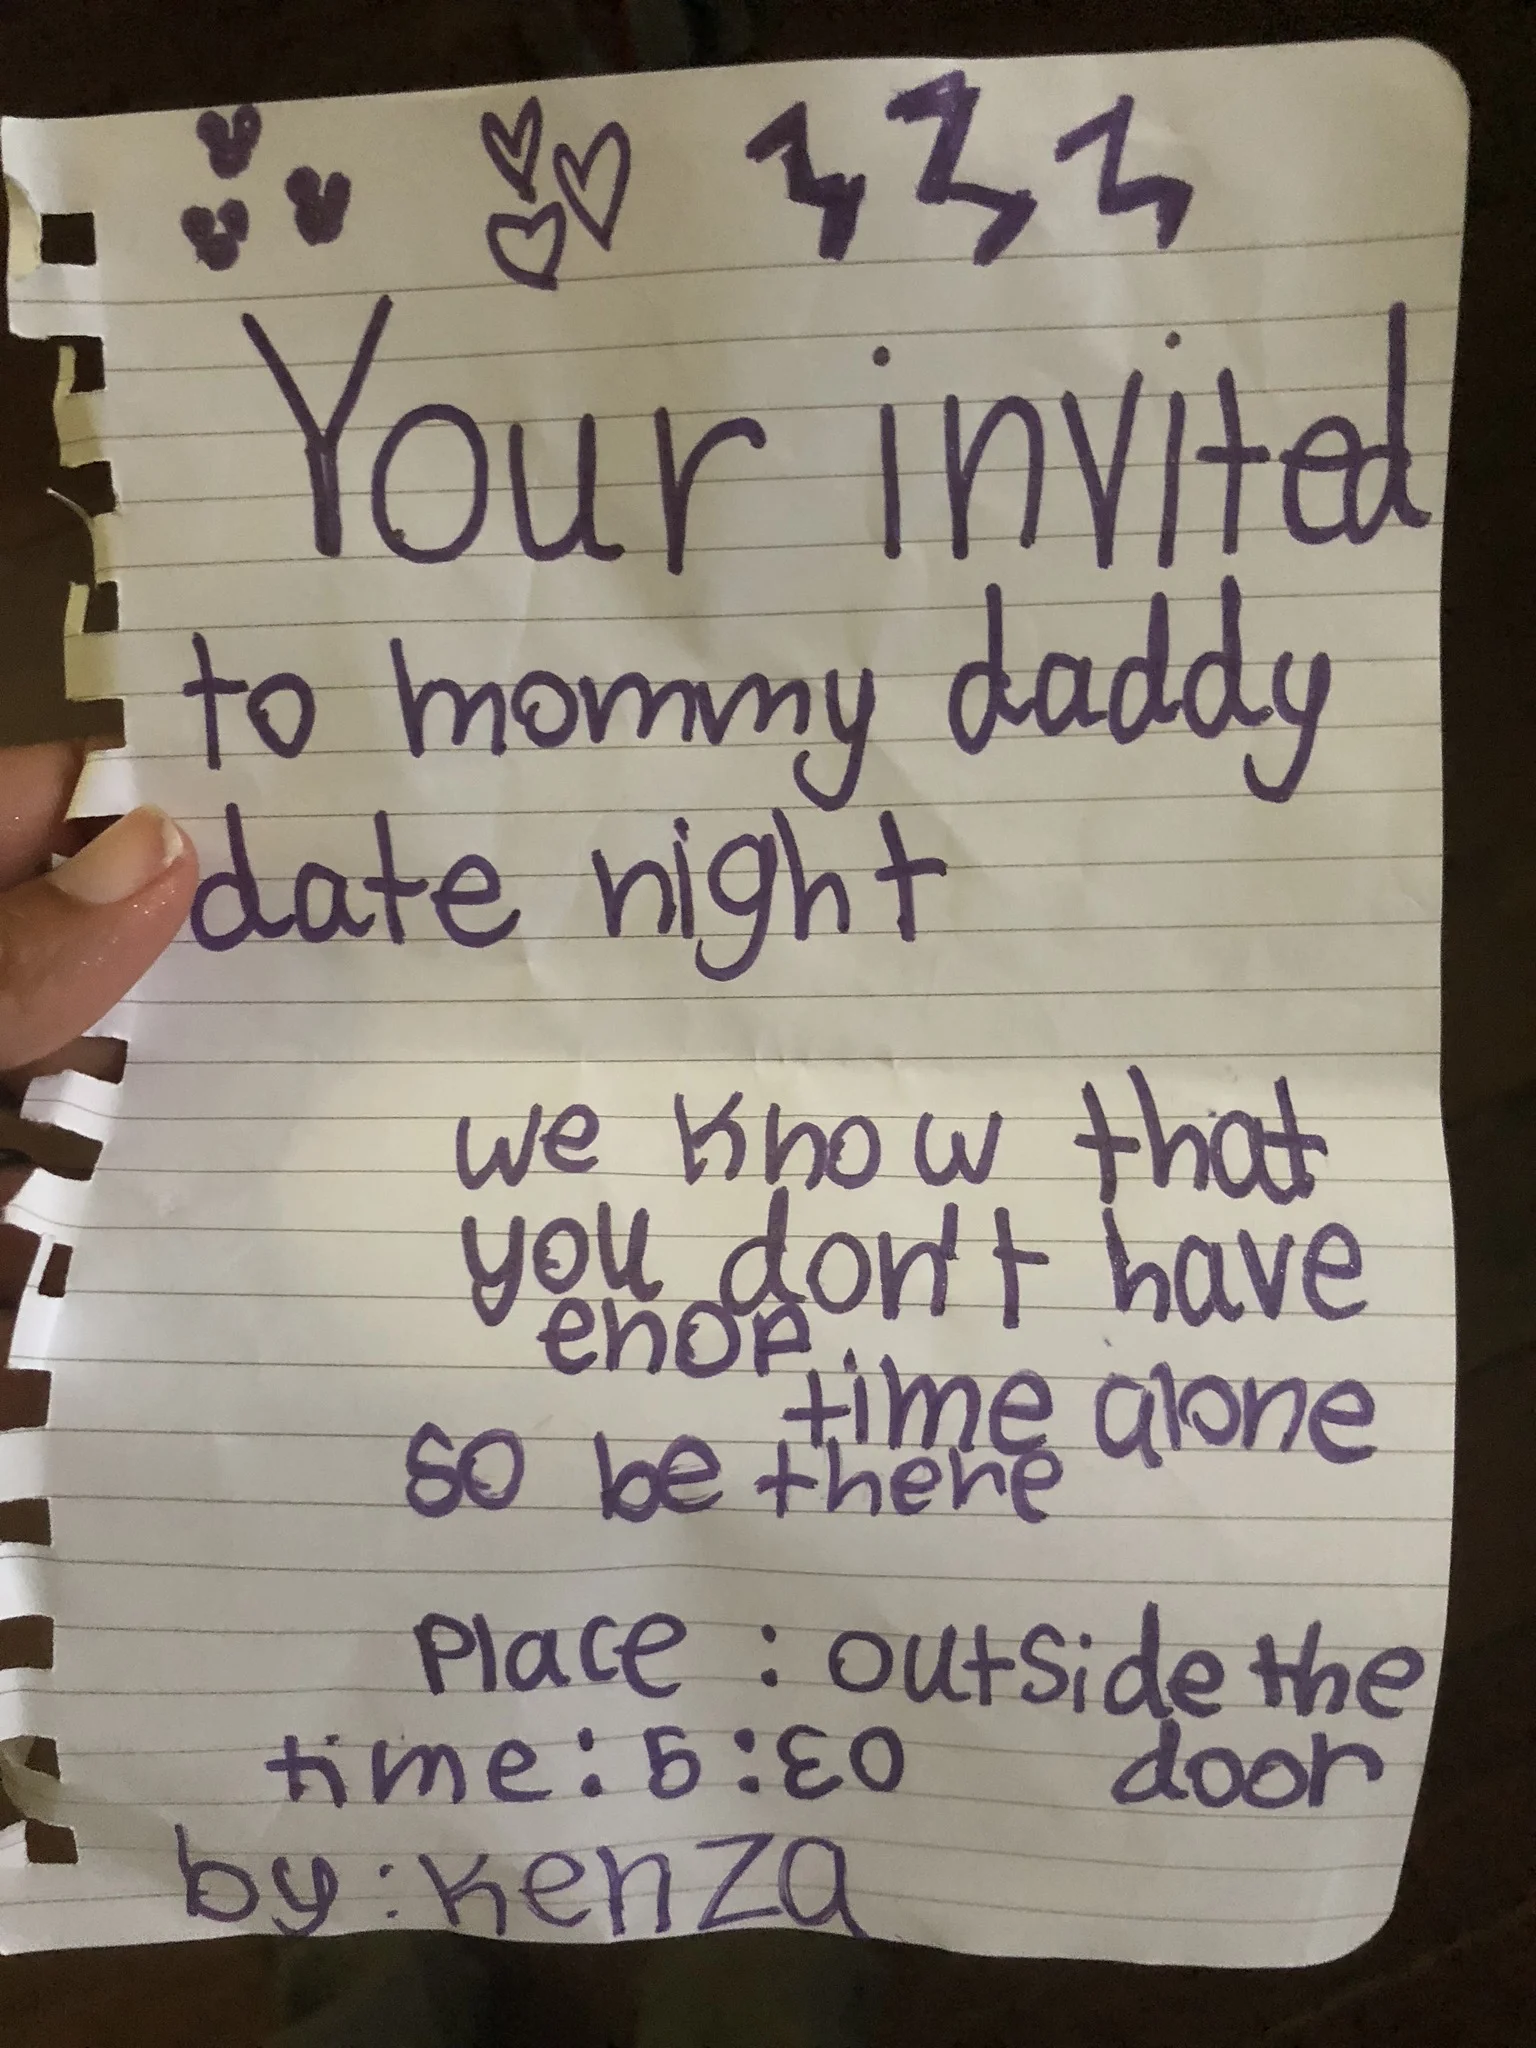 Your invited
to mommy daddy
date night
we know that
you don't have
enop
time alone
so be there
Place : outside the
door
time : 5:30
by : kenza